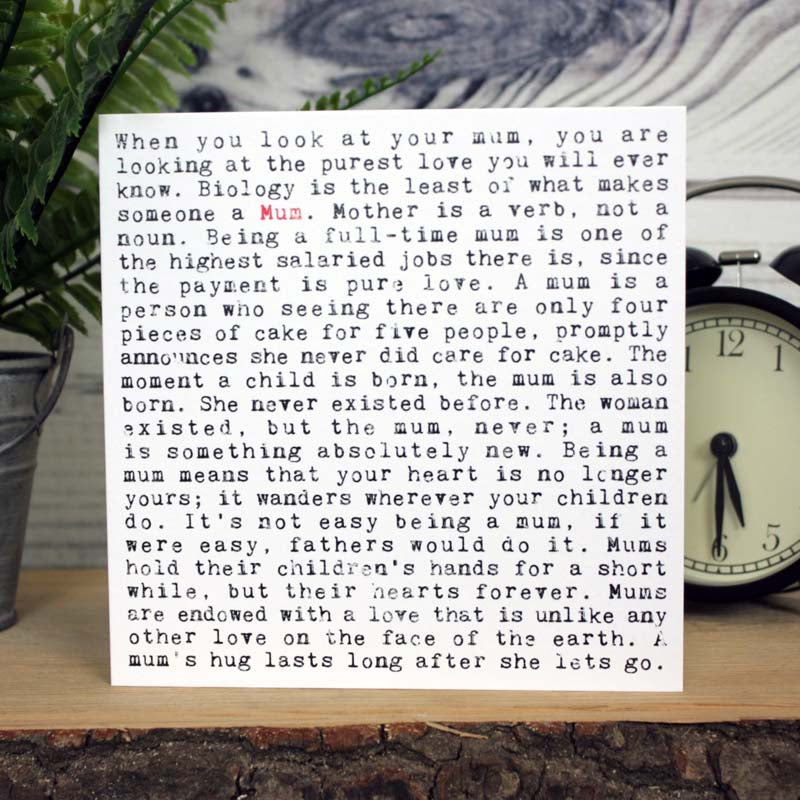 When you look at your mum, you are
looking at the purest love you will ever
know. Biology is the least of what makes
someone a Mum. Mother is a verb, not a
noun. Being a full-time mum is one of
the highest salaried jobs there is, since
the payment is pure love. A mum is a
person who seeing there are only four
pieces of cake for five people, promptly
announces she never did care for cake. The
moment a child is born, the mum is also
born. She never existed before. The woman
existed, but the mum, never; a mum
is something absolutely new. Being a
mum means that your heart is no longer
yours; it wanders wherever your children
do. It's not easy being a mum, if it
were easy, fathers would do it. Mums
hold their children's hands for a short
while, but their hearts forever. Mums
are endowed with a love that is unlike any
other love on the face of the earth. A
mum's hug lasts long after she lets go.
12
1
5
6